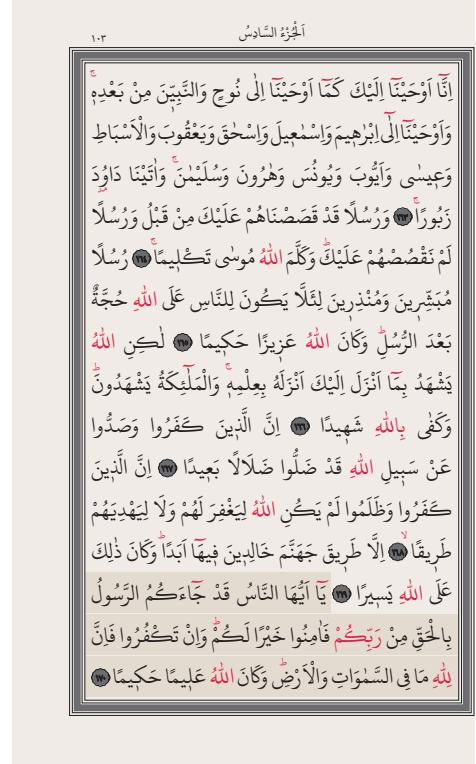 اَلْجُزْءُ السَّادِسُ
١٠٣
اِنَّٓا اَوْحَيْنَٓا اِلَيْكَ كَمَٓا اَوْحَيْنَٓا اِلٰى نُوحٍ وَالنَّبِيّ۪نَ مِنْ بَعْدِه۪ۚ
وَاَوْحَيْنَٓا اِلٰٓى اِبْرٰه۪يمَ وَاِسْمٰع۪يلَ وَاِسْحٰقَ وَيَعْقُوبَ وَالْاَسْبَاطِ
وَع۪يسٰى وَاَيُّوبَ وَيُونُسَ وَهٰرُونَ وَسُلَيْمٰنَۚ وَاٰتَيْنَا دَاوُ۫دَ
زَبُورًاۚ ﴿١٦٣﴾ وَرُسُلًا قَدْ قَصَصْنَاهُمْ عَلَيْكَ مِنْ قَبْلُ وَرُسُلًا
لَمْ نَقْصُصْهُمْ عَلَيْكَۜ وَكَلَّمَ اللّٰهُ مُوسٰى تَكْل۪يمًاۚ ﴿١٦٤﴾ رُسُلًا
مُبَشِّر۪ينَ وَمُنْذِر۪ينَ لِئَلَّا يَكُونَ لِلنَّاسِ عَلَى اللّٰهِ حُجَّةٌ
بَعْدَ الرُّسُلِۜ وَكَانَ اللّٰهُ عَز۪يزًا حَك۪يمًا ﴿١٦٥﴾ لٰكِنِ اللّٰهُ
يَشْهَدُ بِمَٓا اَنْزَلَ اِلَيْكَ اَنْزَلَهُ بِعِلْمِه۪ۚ وَالْمَلٰٓئِكَةُ يَشْهَدُونَۜ
وَكَفٰى بِاللّٰهِ شَه۪يدًا ﴿١٦٦﴾ اِنَّ الَّذ۪ينَ كَفَرُوا وَصَدُّوا
عَنْ سَب۪يلِ اللّٰهِ قَدْ ضَلُّوا ضَلَالًا بَع۪يدًا ﴿١٦٧﴾ اِنَّ الَّذ۪ينَ
كَفَرُوا وَظَلَمُوا لَمْ يَكُنِ اللّٰهُ لِيَغْفِرَ لَهُمْ وَلَا لِيَهْدِيَهُمْ
طَر۪يقًاۙ ﴿١٦٨﴾ اِلَّا طَر۪يقَ جَهَنَّمَ خَالِد۪ينَ ف۪يهَٓا اَبَدًاۜ وَكَانَ ذٰلِكَ
عَلَى اللّٰهِ يَس۪يرًا ﴿١٦٩﴾ يَٓا اَيُّهَا النَّاسُ قَدْ جَٓاءَكُمُ الرَّسُولُ
بِالْحَقِّ مِنْ رَبِّكُمْ فَاٰمِنُوا خَيْرًا لَكُمْۜ وَاِنْ تَكْفُرُوا فَاِنَّ
لِلّٰهِ مَا فِي السَّمٰوَاتِ وَالْاَرْضِۜ وَكَانَ اللّٰهُ عَل۪يمًا حَك۪يمًا ﴿١٧٠﴾